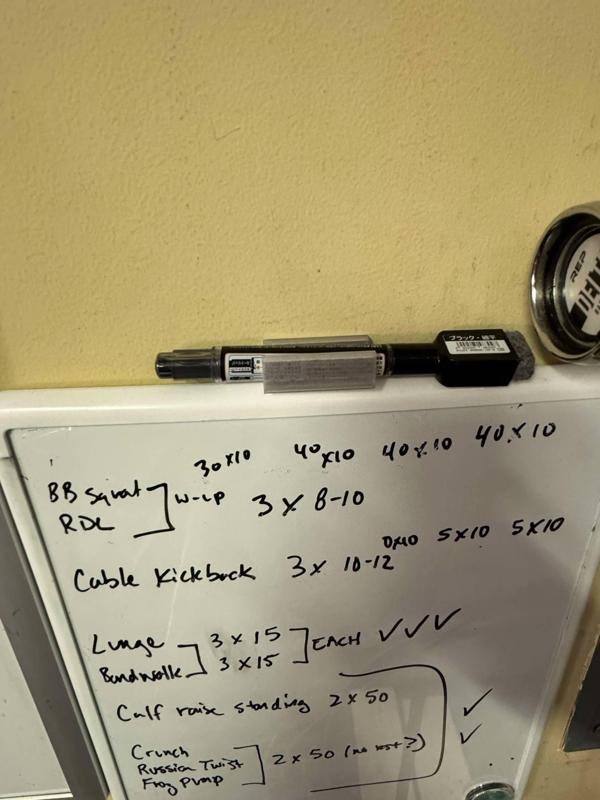 REP
ブラック・細字
30x10 40x10 40x10 40x10
BB Squat
RDL
W-UP 3 x 8-10
0x10 5x10 5x10
Cable Kickback 3 x 10-12
Lunge 3 x 15
Bandwalk 3 x 15
EACH ✓✓✓
Calf raise standing 2 x 50 ✓
Crunch
Russian Twist 2 x 50 (no rest?) ✓
Frog Pump